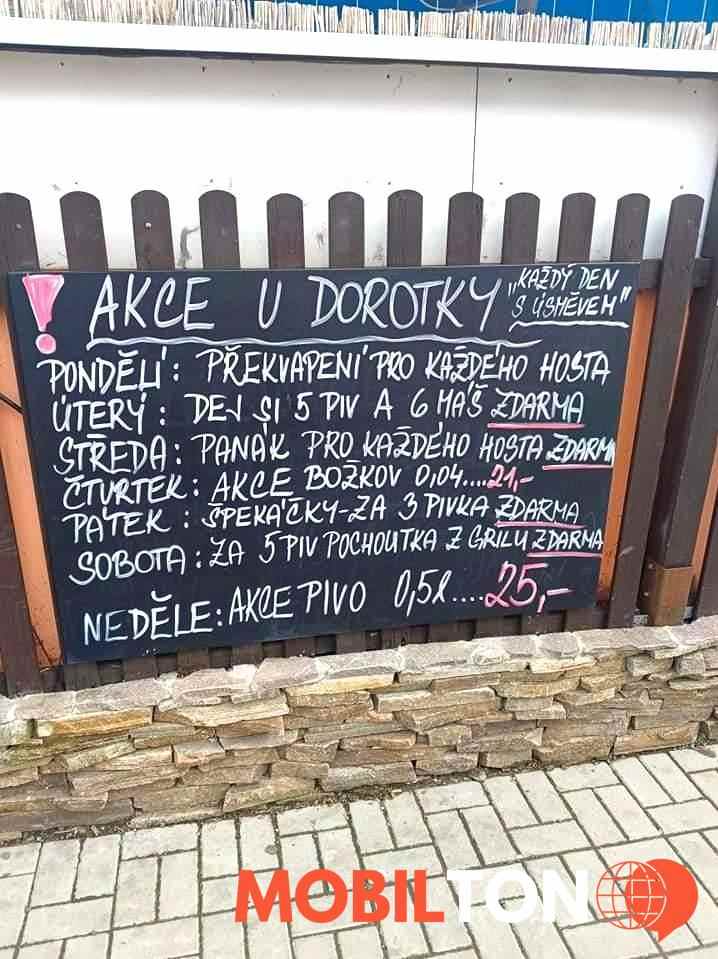 ! AKCE U DOROTKY „KAŽDÝ DEN
S ÚSMĚVEM"
PONDĚLÍ: PŘEKVAPENÍ PRO KAŽDÉHO HOSTA
ÚTERÝ: DEJ SI 5 PIV A 6 MÁŠ ZDARMA
STŘEDA: PANÁK PRO KAŽDÉHO HOSTA ZDARMA
ČTVRTEK: AKCE BOŽKOV 0,04....21,-
PÁTEK: ŠPEKÁČKY-ZA 3 PIVKA ZDARMA
SOBOTA: ZA 5 PIV POCHOUTKA Z GRILU ZDARMA
NEDĚLE: AKCE PIVO 0,5l....25,-
MOBILTON